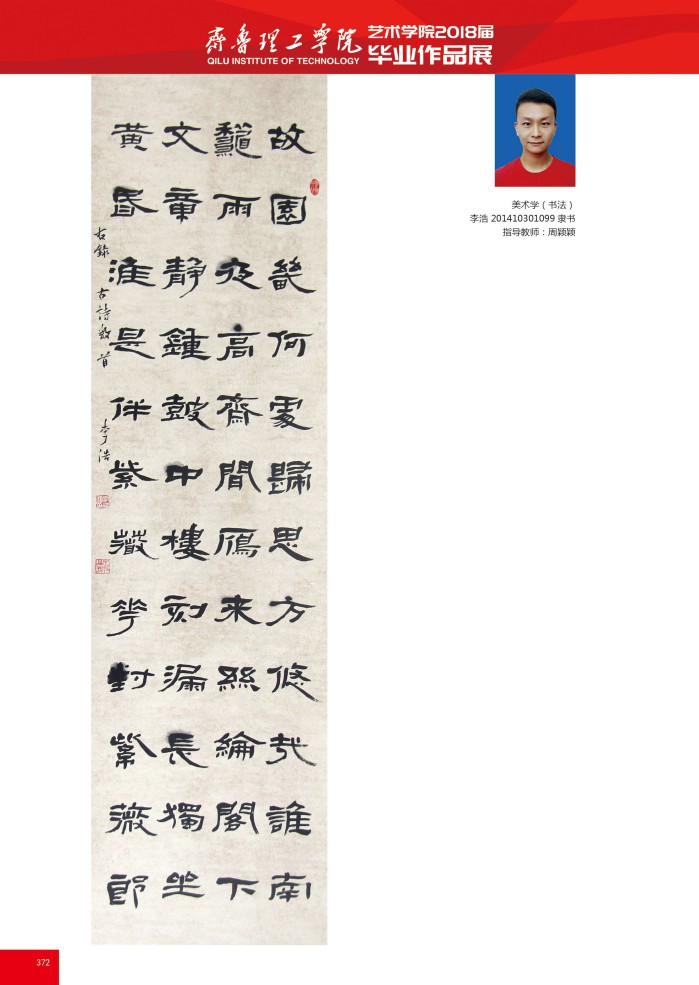 齊魯理工學院
QILU INSTITUTE OF TECHNOLOGY
艺术学院2018届
毕业作品展
故園畿何處歸思方悠哉誰南
龝雨夜高齋間鴈来絲綸閣下
文章靜鍾鼓中樓刻漏長獨坐
黄昏淮是伴紫薇花對紫薇郎
右錄 古詩數首 李浩
美术学（书法）
李浩 201410301099 隶书
指导教师：周颖颖
372